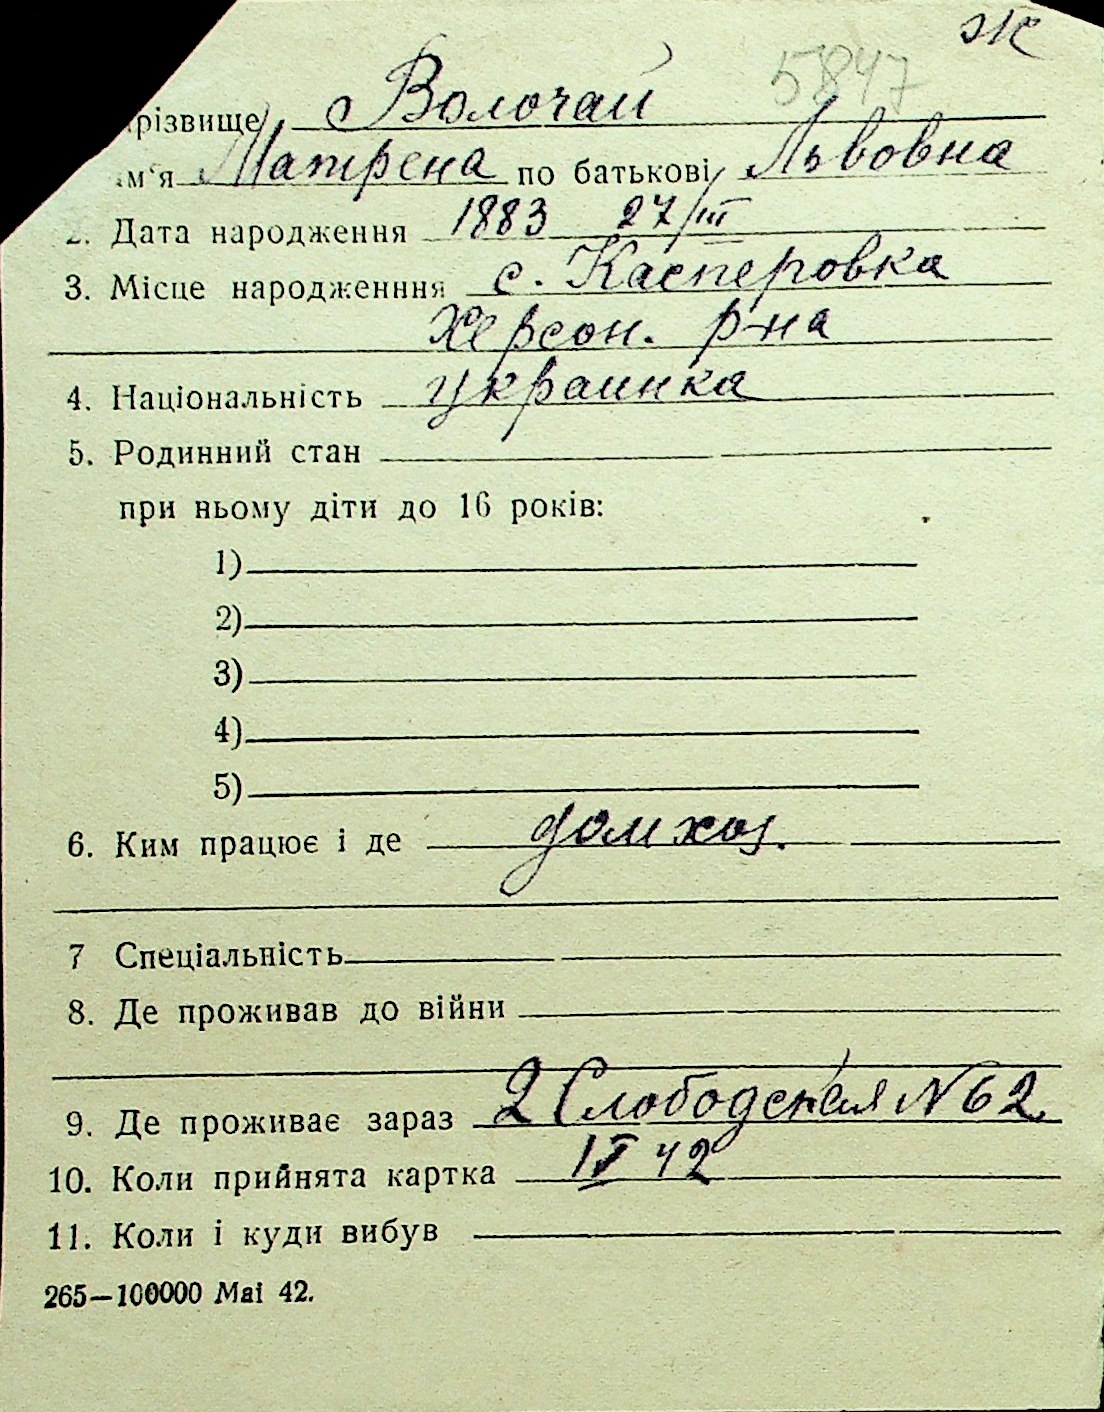 Ж
5847
різвище Волочай
ім'я Матрена по батькові Львовна
2. Дата народження 1883 27/III
3. Місце народженння с. Касперовка
Херсон. р-на
4. Національність украинка
5. Родинний стан
при ньому діти до 16 років:
1)
2)
3)
4)
5)
6. Ким працює і де дом хоз.
7 Спеціальність
8. Де проживав до війни
9. Де проживає зараз 2 Слободская N 62
10. Коли прийнята картка IV 42
11. Коли і куди вибув
265—100000 Mai 42.